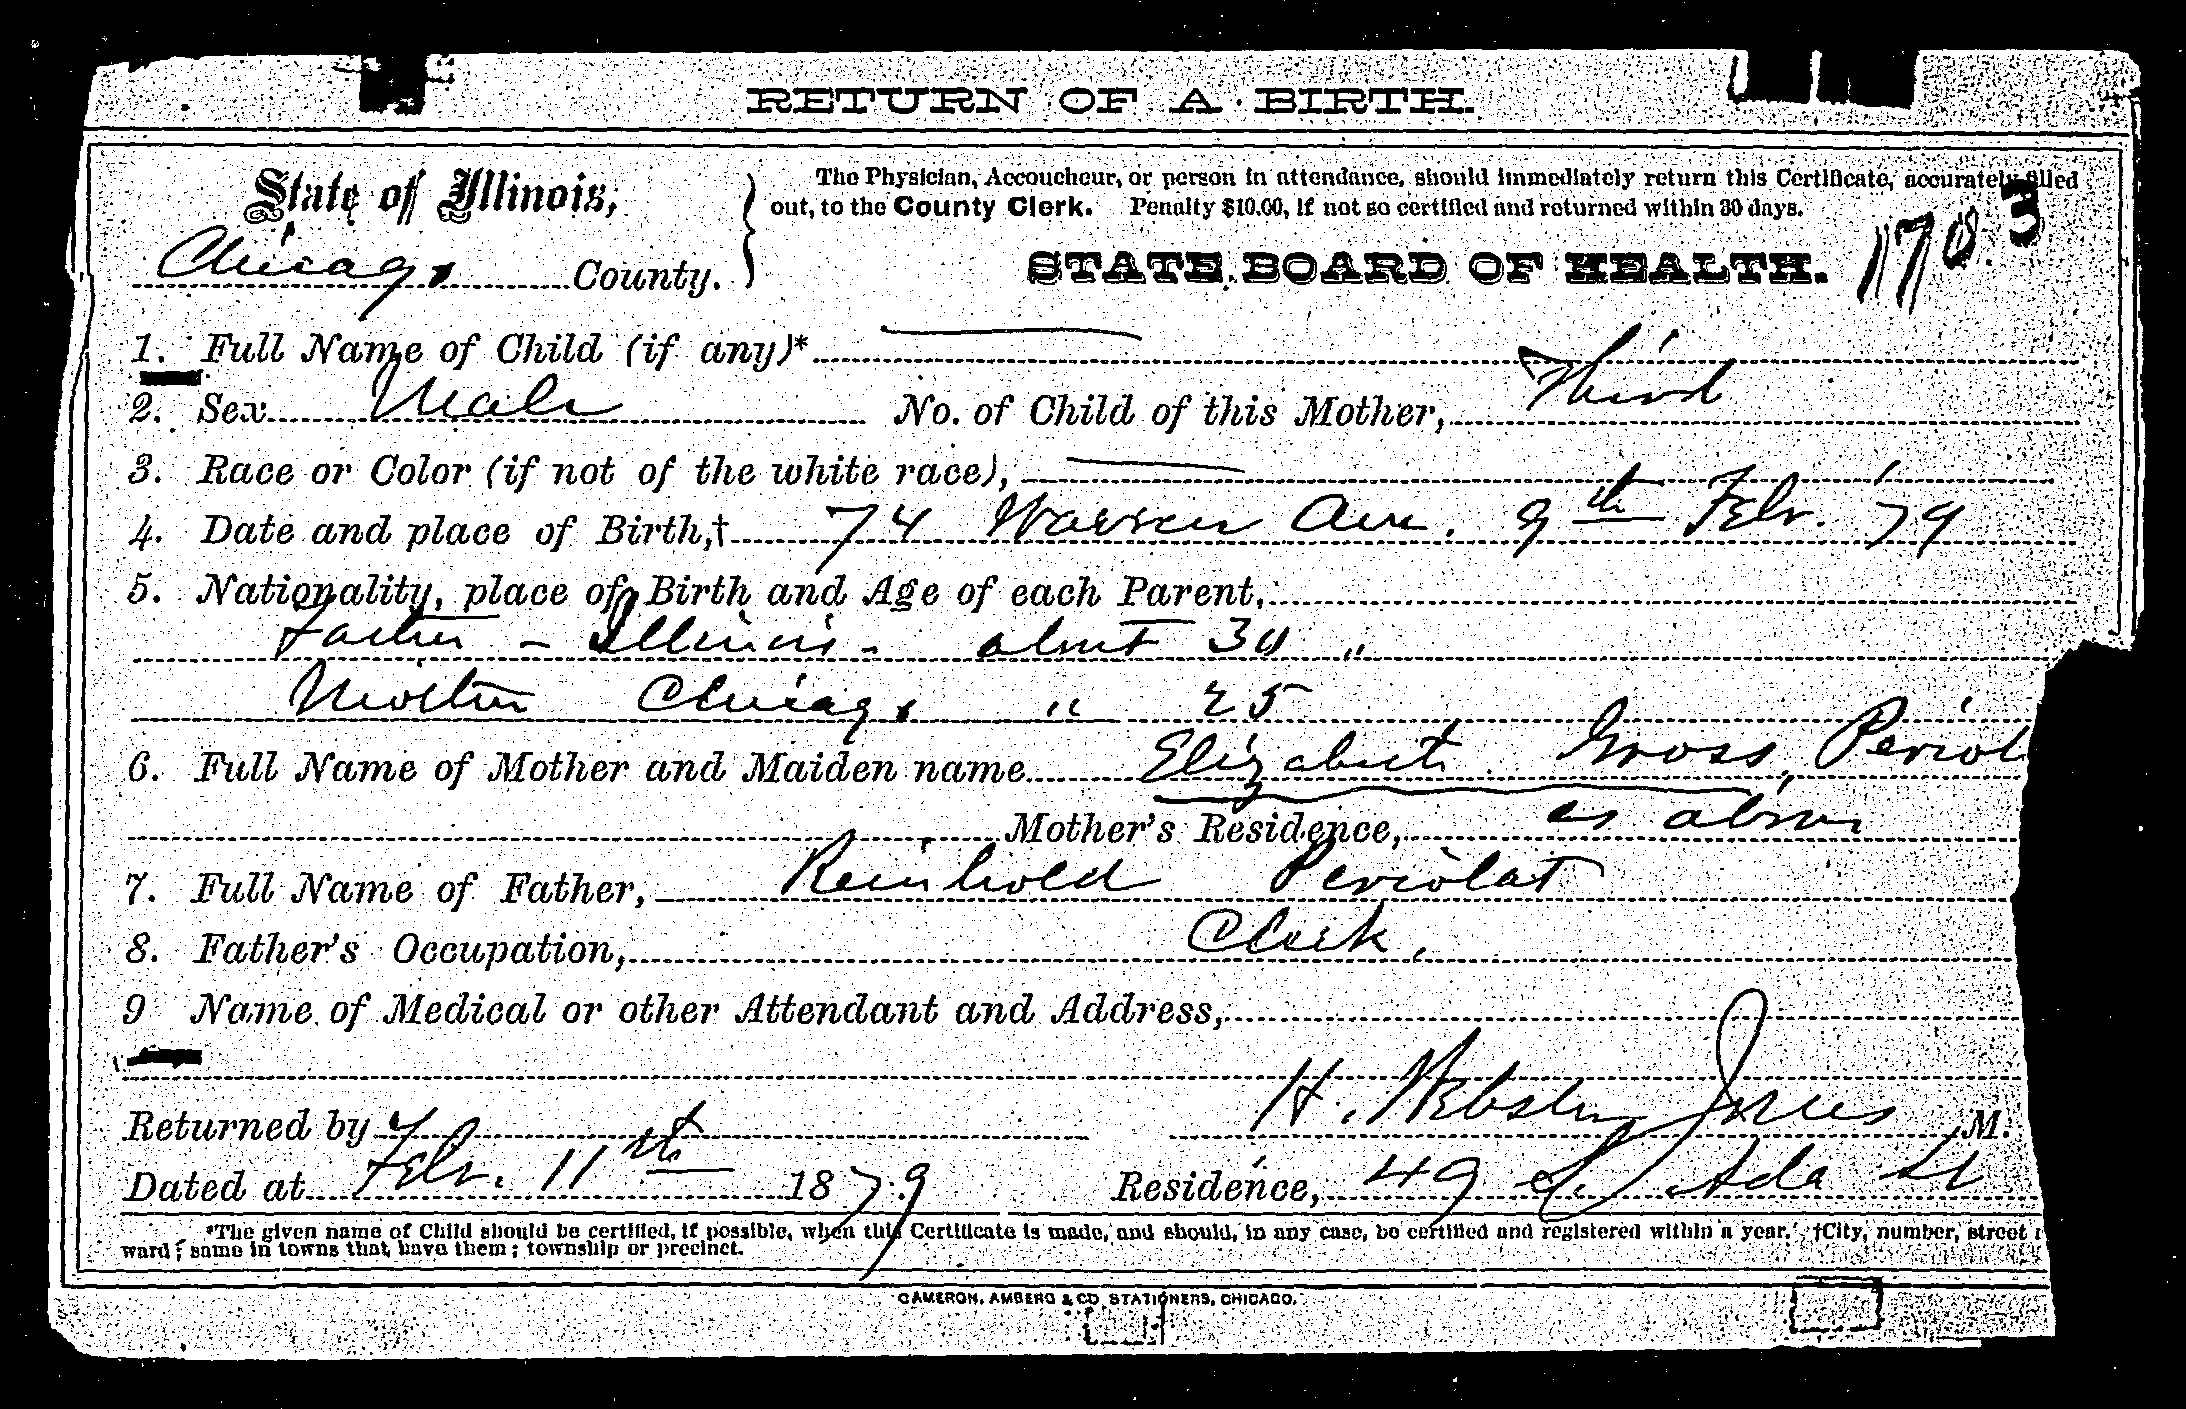 RETURN OF A BIRTH.
State of Illinois,
Chicago County.
The Physician, Accoucheur, or person in attendance, should immediately return this Certificate, accurately filled
out, to the County Clerk. Penalty $10.00, if not so certified and returned within 30 days.
STATE BOARD OF HEALTH.
1. Full Name of Child (if any)*
2. Sex Male No. of Child of this Mother, Third
3. Race or Color (if not of the white race),
4. Date and place of Birth,† 74 Warren Ave. 9th Feb. '79
5. Nationality, place of Birth and Age of each Parent,
Father - Illinois - about 30 "
Mother Chicago " 25
6. Full Name of Mother and Maiden name Elizabeth Gross, Periol
Mother's Residence, as above
7. Full Name of Father, Reinhold Periolat
8. Father's Occupation, Clerk,
9 Name of Medical or other Attendant and Address,
Returned by H. Webster Jones M.
Dated at Feb. 11th 1879 Residence, 49 S. Ada St
*The given name of Child should be certified, if possible, when this Certificate is made, and should, in any case, be certified and registered within a year. †City, number, street
ward; same in towns that have them; township or precinct.
CAMERON, AMBERG & CO. STATIONERS, CHICAGO.